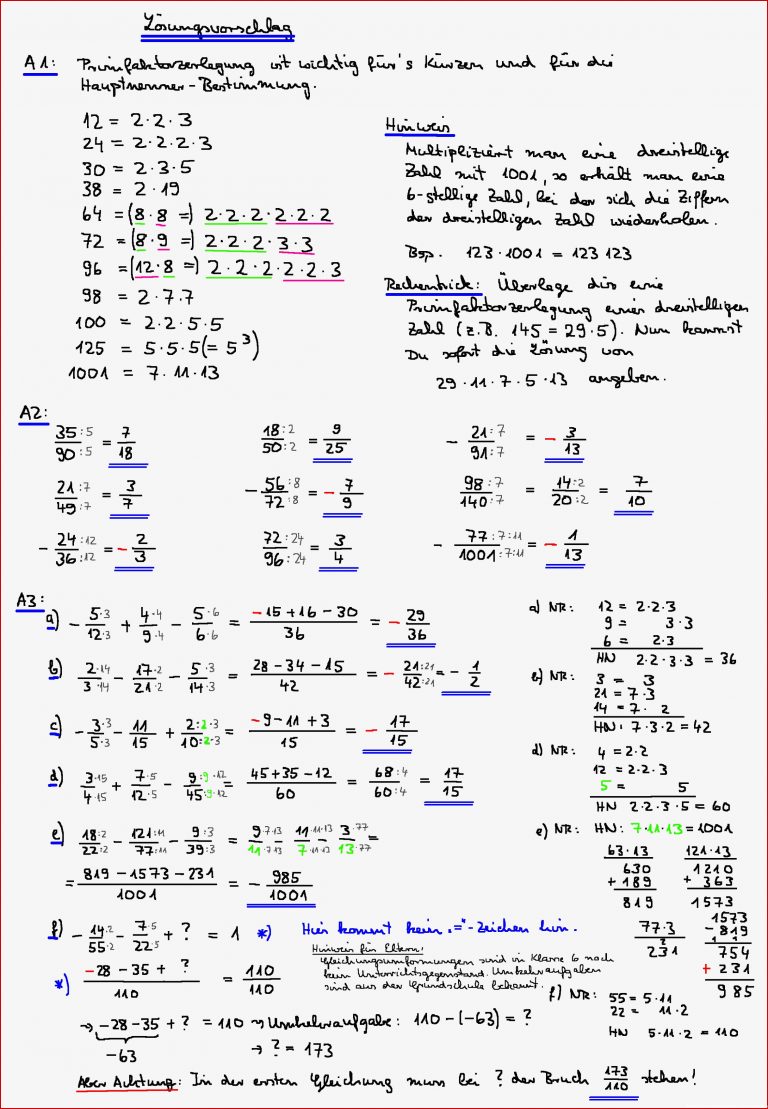 Lösungsvorschlag
A1: Primfaktorzerlegung ist wichtig für's Kürzen und für die
Hauptnenner-Bestimmung.
12 = 2·2·3
24 = 2·2·2·3
30 = 2·3·5
38 = 2·19
64 = (8·8 =) 2·2·2·2·2·2
72 = (8·9 =) 2·2·2·3·3
96 = (12·8 =) 2·2·2·2·2·3
98 = 2·7·7
100 = 2·2·5·5
125 = 5·5·5 (= 5³)
1001 = 7·11·13
Hinweis
Multipliziert man eine dreistellige
Zahl mit 1001, so erhält man eine
6-stellige Zahl, bei der sich die Ziffern
der dreistelligen Zahl wiederholen.
Bsp. 123·1001 = 123 123
Rechentrick: Überlege dir eine
Primfaktorzerlegung einer dreistelligen
Zahl (z.B. 145 = 29·5). Nun kannst
Du sofort die Lösung von
29·11·7·5·13 angeben.
A2:
35:5/90:5 = 7/18
18:2/50:2 = 9/25
- 21:7/91:7 = - 3/13
21:7/49:7 = 3/7
- 56:8/72:8 = - 7/9
98:7/140:7 = 14:2/20:2 = 7/10
- 24:12/36:12 = - 2/3
72:24/96:24 = 3/4
- 77:7:11/1001:7:11 = - 1/13
A3:
a) - 5·3/12·3 + 4·4/9·4 - 5·6/6·6 = -15+16-30/36 = - 29/36
b) 2·14/3·14 - 17·2/21·2 - 5·3/14·3 = 28-34-15/42 = - 21:21/42:21 = - 1/2
c) - 3·3/5·3 - 11/15 + 2:2·3/10:2·3 = -9-11+3/15 = - 17/15
d) 3·15/4·15 + 7·5/12·5 - 9:9·12/45:9·12 = 45+35-12/60 = 68:4/60:4 = 17/15
e) 18:2/22:2 - 121:11/77:11 - 9:3/39:3 = 9·7·13/11·7·13 - 11·11·13/7·11·13 - 3·77/13·77 =
= 819-1573-231/1001 = - 985/1001
f) - 14·2/55·2 - 7·5/22·5 + ? = 1 *) Hier kommt kein "="-Zeichen hin.
Hinweis für Eltern:
Gleichungsumformungen sind in Klasse 6 noch
kein Unterrichtsgegenstand. Umkehraufgaben
sind aus der Grundschule bekannt.
*) -28-35+ ?/110 = 110/110
→ -28-35 + ? = 110 → Umkehraufgabe: 110-(-63) = ?
-63
→ ? = 173
Aber Achtung: In der ersten Gleichung muss bei ? der Bruch 173/110 stehen!
a) NR: 12 = 2·2·3
9 = 3·3
6 = 2·3
HN 2·2·3·3 = 36
b) NR: 3 = 3
21 = 7·3
14 = 7·2
HN: 7·3·2 = 42
d) NR: 4 = 2·2
12 = 2·2·3
5 = 5
HN 2·2·3·5 = 60
e) NR: HN: 7·11·13 = 1001
63·13
630
+189
819
121·13
1210
+ 363
1573
77·3
2
231
1573
-819
1 1
754
+ 231
985
f) NR: 55 = 5·11
22 = 11·2
HN 5·11·2 = 110